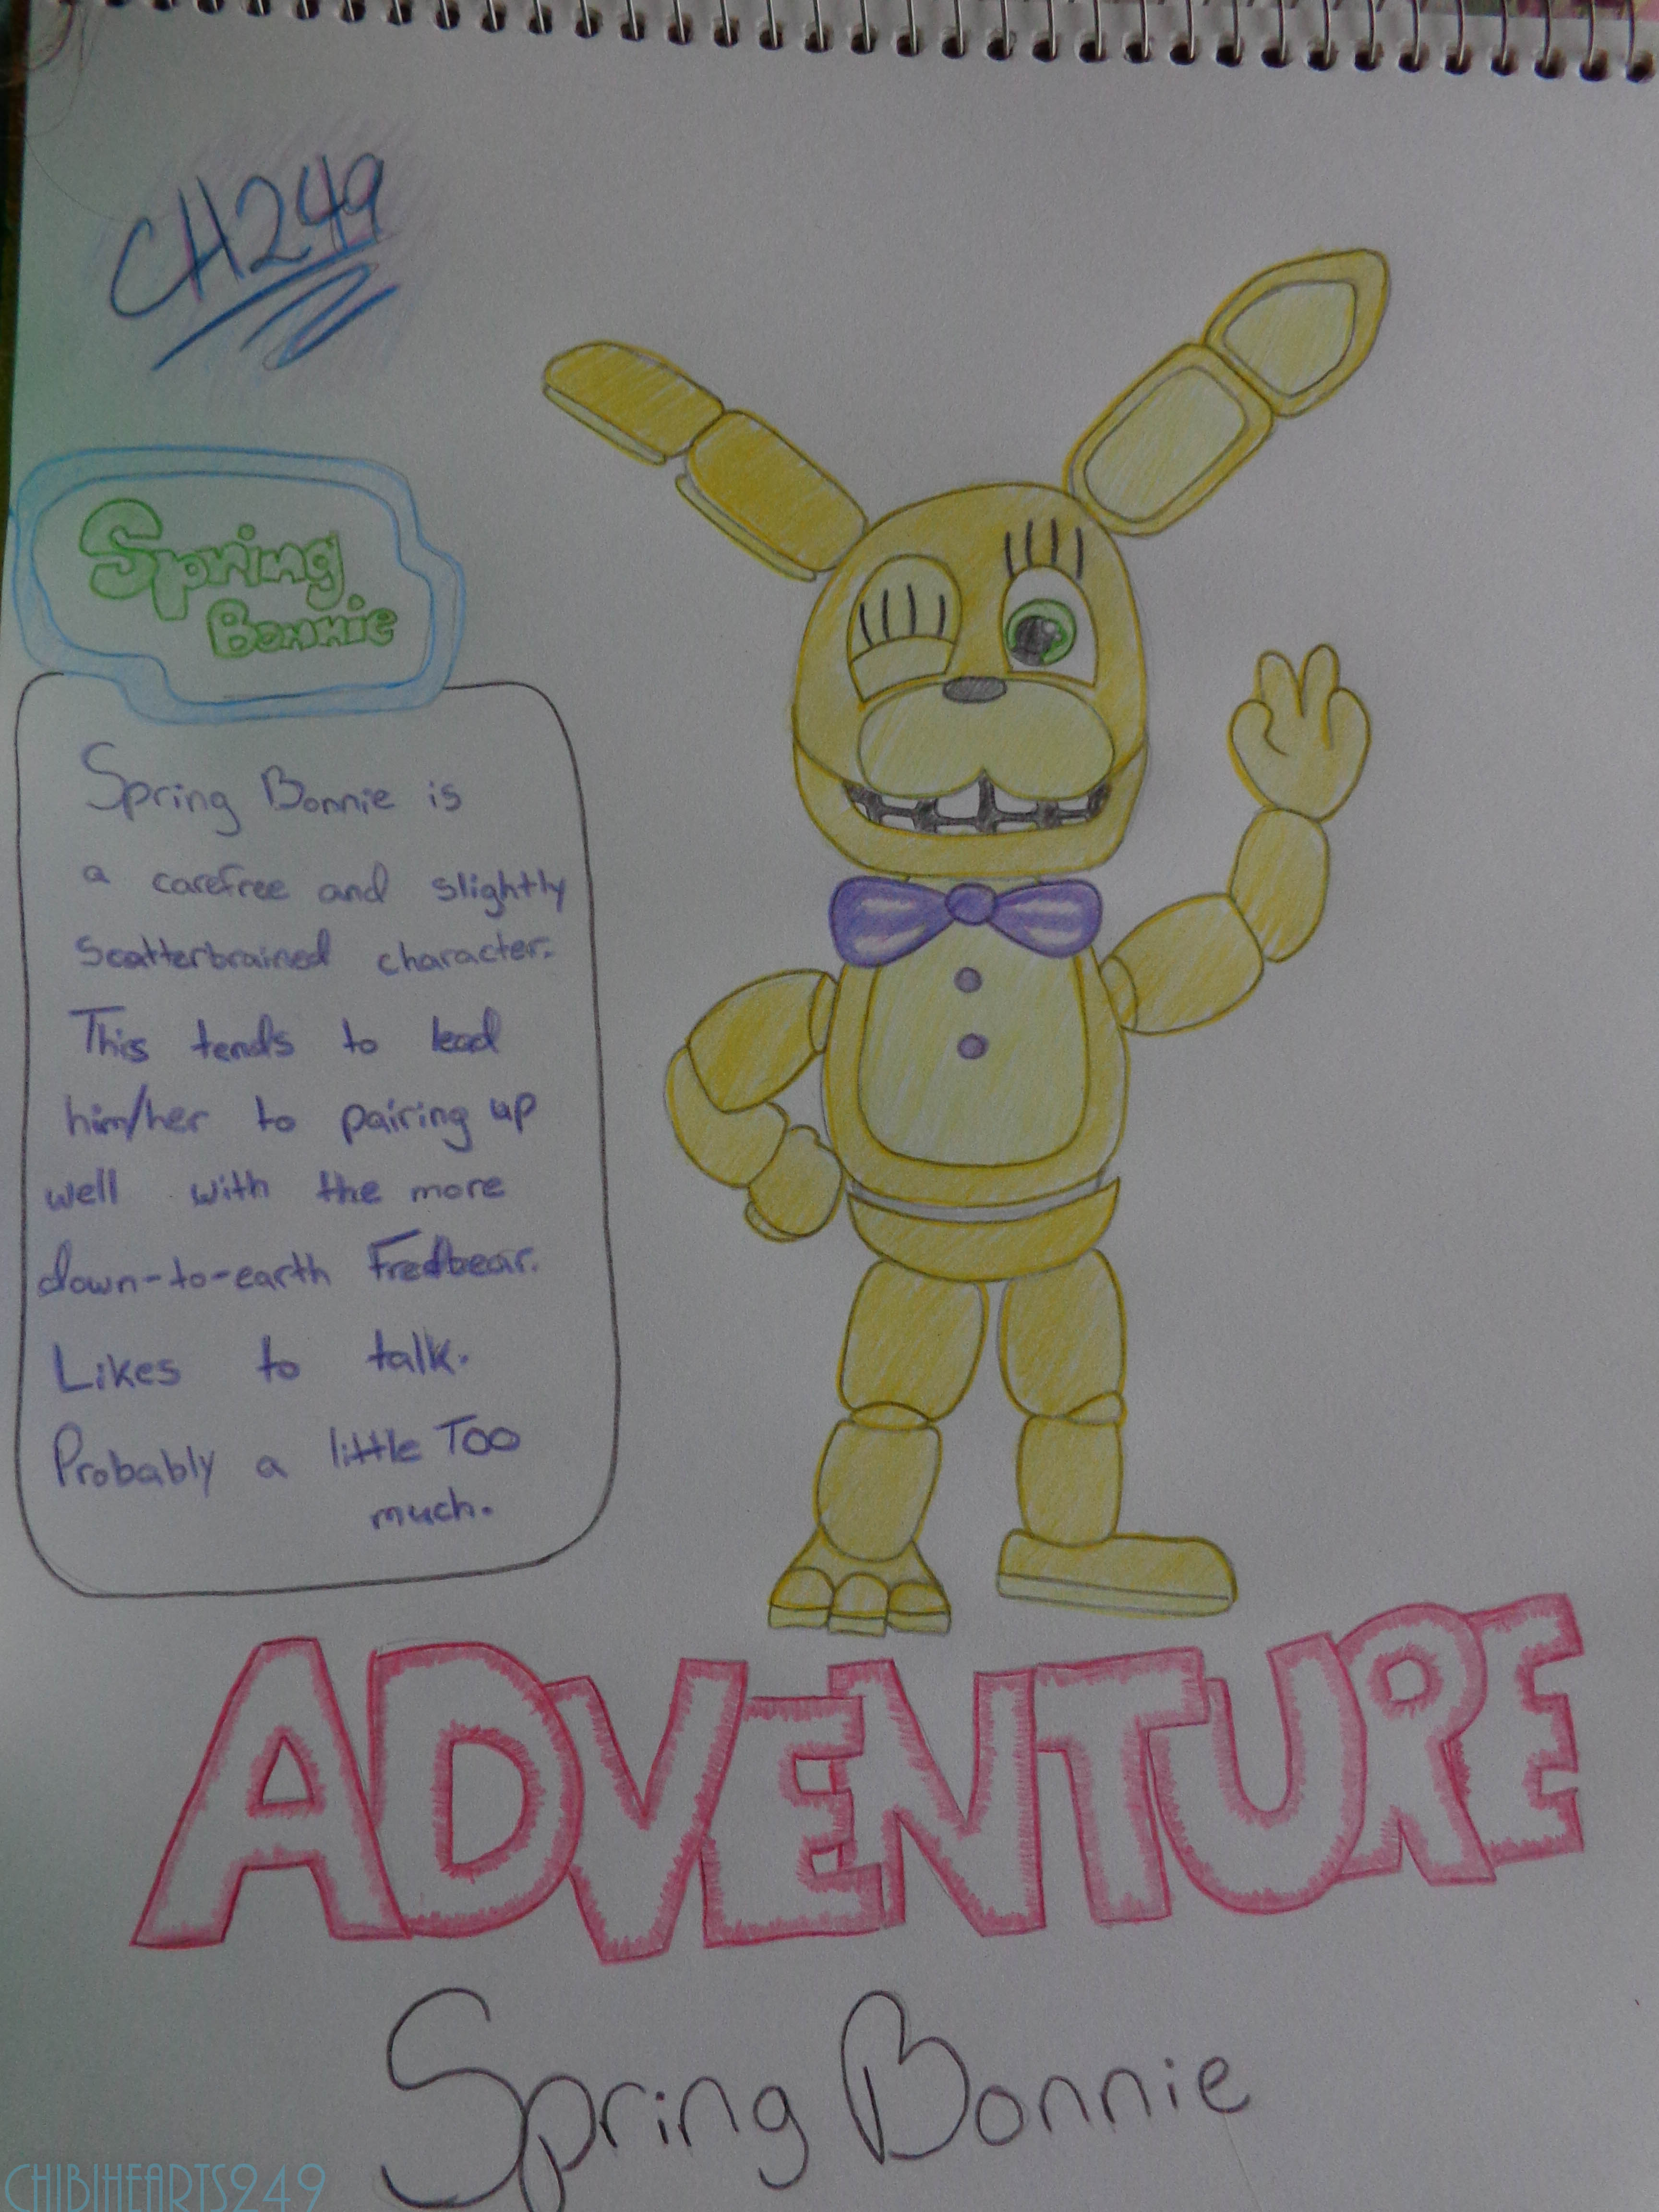 CH249
Spring
Bonnie
Spring Bonnie is
a carefree and slightly
scatterbrained character.
This tends to lead
him/her to pairing up
well with the more
down-to-earth Fredbear.
Likes to talk.
Probably a little TOO
much.
ADVENTURE
Spring Bonnie
CHIBIHEARTS249